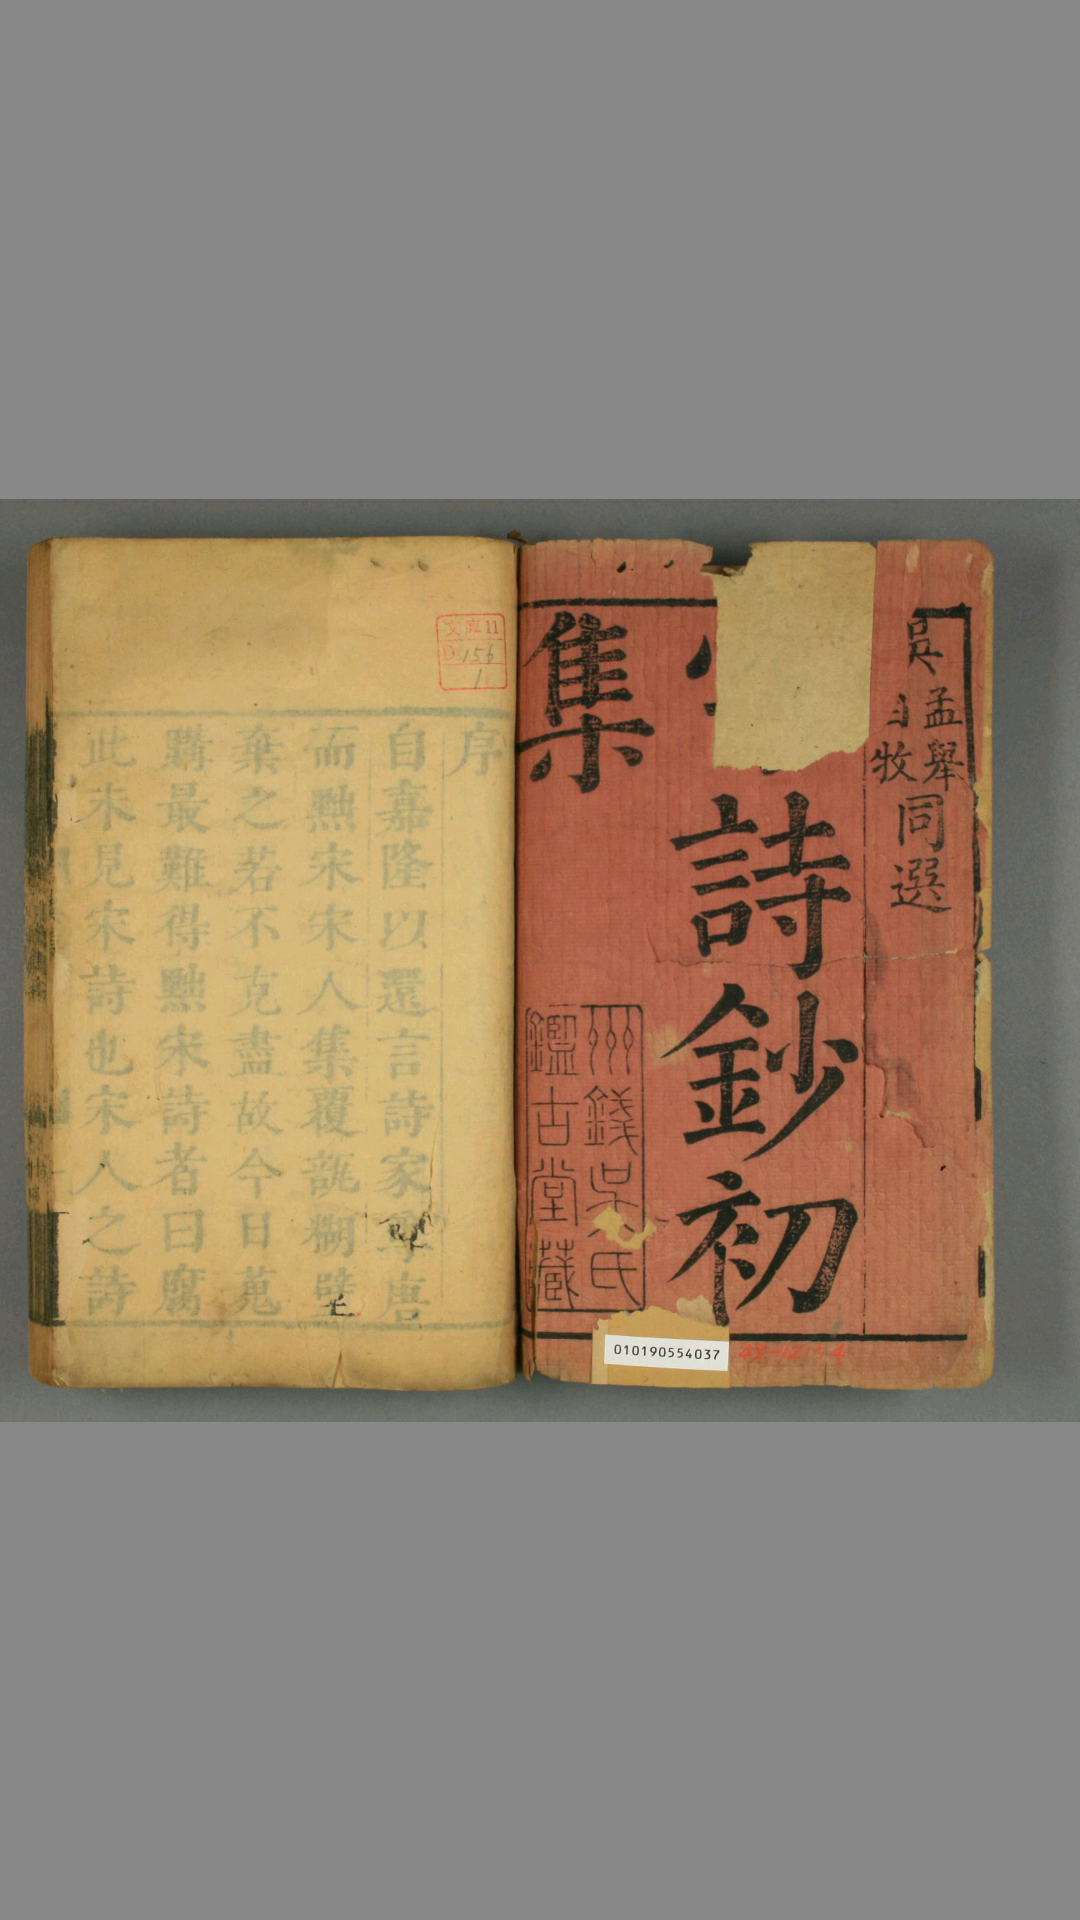 吳
孟舉
自牧
同選
詩鈔初
集
州錢吳氏
鑑古堂藏
010190554037
文庫11
D156
1
序
自嘉隆以還言詩家尊唐
而黜宋宋人集覆瓿糊壁
棄之若不克盡故今日蒐
購最難得黜宋詩者曰腐
此未見宋詩也宋人之詩